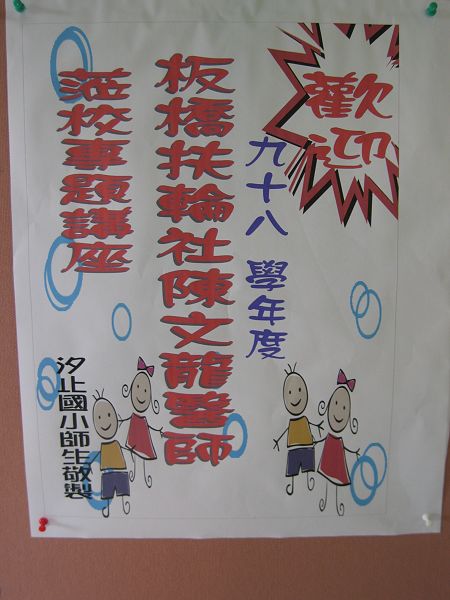 歡迎
九十八 學年度
板橋扶輪社陳文龍醫師
蒞校專題講座
汐止國小師生敬製